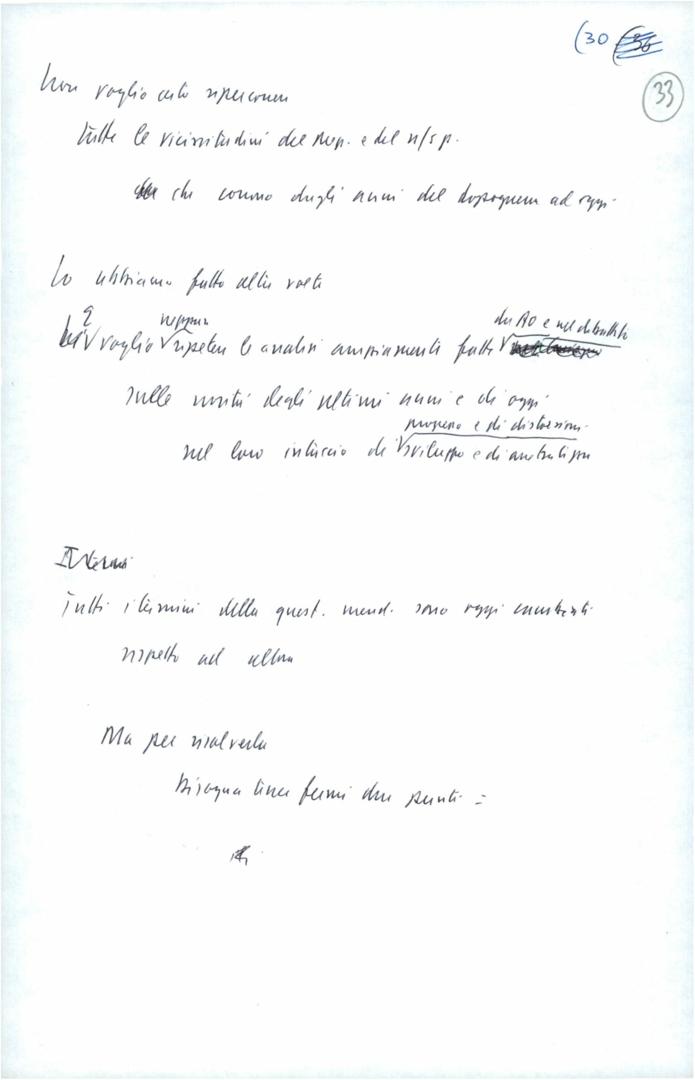 (30
33
Non voglio certo ripercorrere
tutte le vicissitudini del Mezz. e del n/s p.
che corrono dagli anni del dopoguerra ad oggi
Lo abbiamo fatto altre volte
E voglio neppure ripetere le analisi ampiamente fatte da AO e nel dibattito
sulle novità degli ultimi anni e di oggi
nel loro intreccio di progresso e di distorsioni sviluppo e di
Tutti i termini della quest. merid. sono oggi cambiati
rispetto ad allora
Ma per risolverla
Bisogna tener fermi due punti =